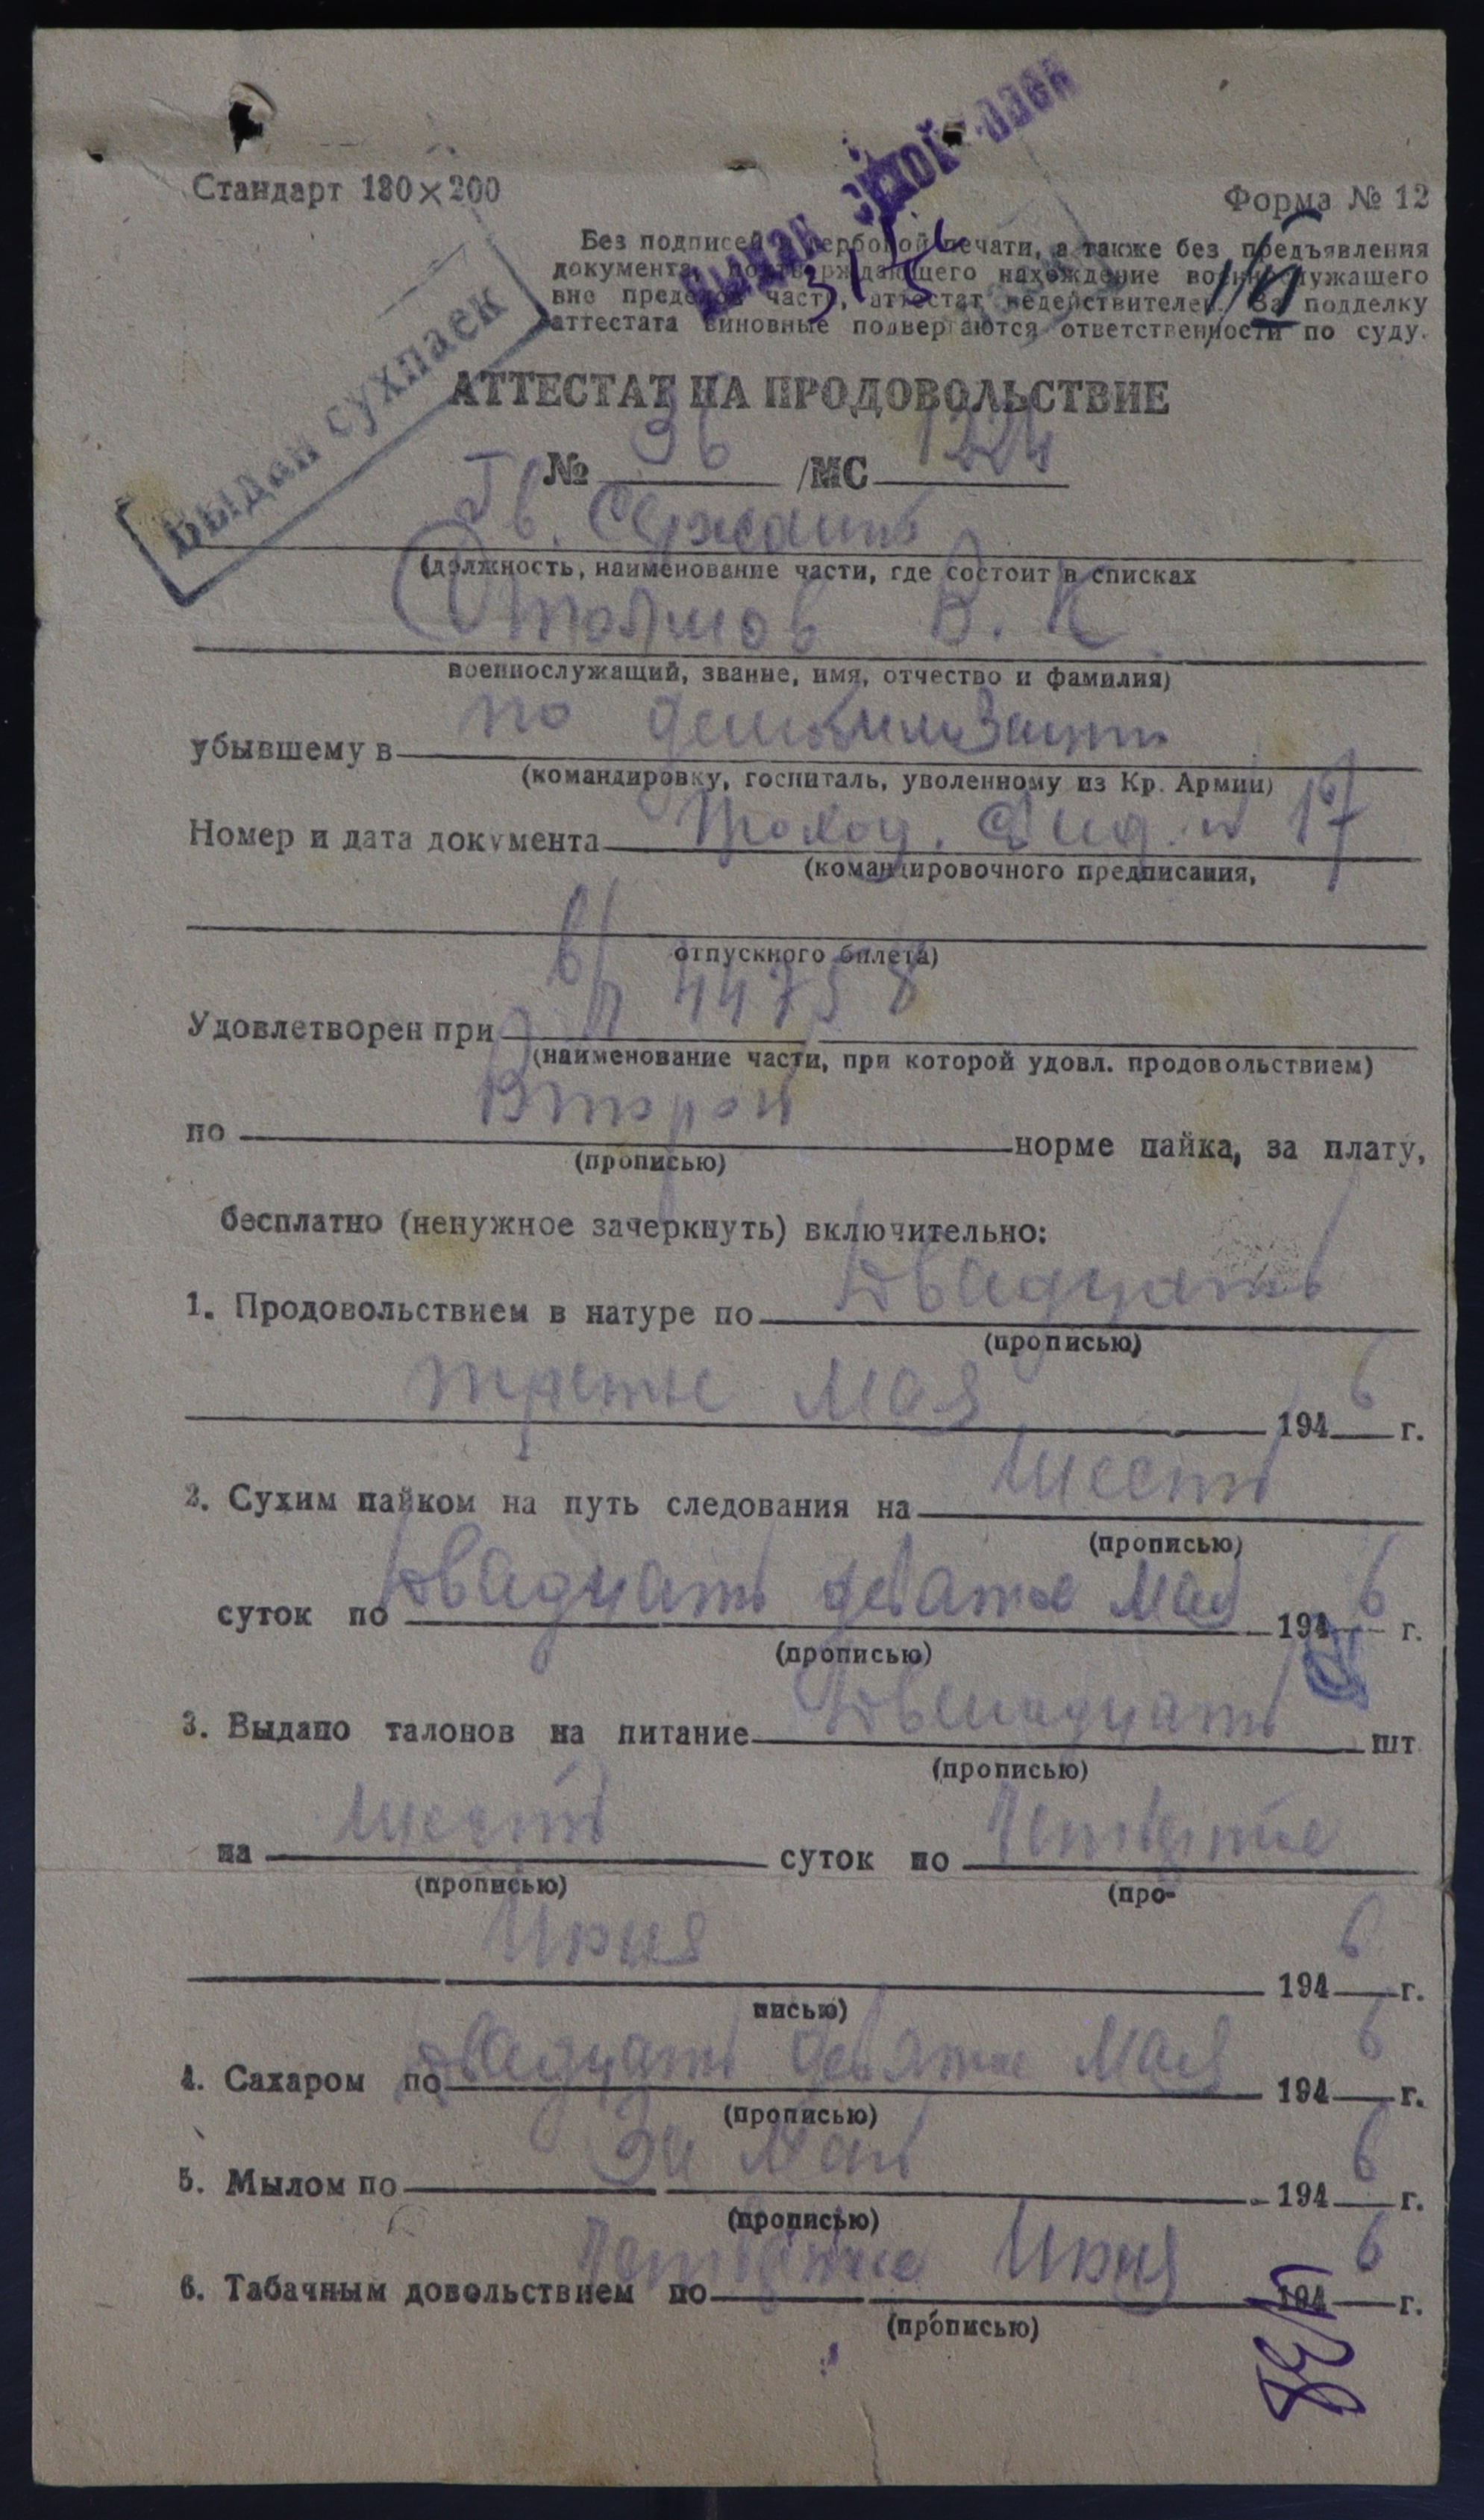 Стандарт 130×200
Форма № 12
Без подписей и гербовой печати, а также без предъявления
документа, подтверждающего нахождение военнослужащего
вне пределов части, аттестат недействителен. За подделку
аттестата виновные подвергаются ответственности по суду.
Выдан сухпаек
АТТЕСТАТ НА ПРОДОВОЛЬСТВИЕ
№ 36 /МС 1224
Гв. Сержант
(должность, наименование части, где состоит в списках
В. К.
военнослужащий, звание, имя, отчество и фамилия)
убывшему в по демобилизации
(командировку, госпиталь, уволенному из Кр. Армии)
Номер и дата документа Проход. Свид. № 17
(командировочного предписания,
отпускного билета)
Удовлетворен при в/п 44758
(наименование части, при которой удовл. продовольствием)
по Второй норме пайка, за плату,
(прописью)
бесплатно (ненужное зачеркнуть) включительно:
1. Продовольствием в натуре по Двадцать
(прописью)
третье Мая 1946 г.
2. Сухим пайком на путь следования на шесть
(прописью)
суток по Двадцать девятое Мая 1946 г.
(прописью)
3. Выдано талонов на питание Двенадцать шт
(прописью)
на шесть суток по Четвертое
(прописью) (про-
Июня 1946 г.
писью)
4. Сахаром по Двадцать девятое Мая 1946 г.
(прописью)
5. Мылом по За Май 1946 г.
(прописью)
6. Табачным довольствием по Четвертое Июня 1946 г.
(прописью)